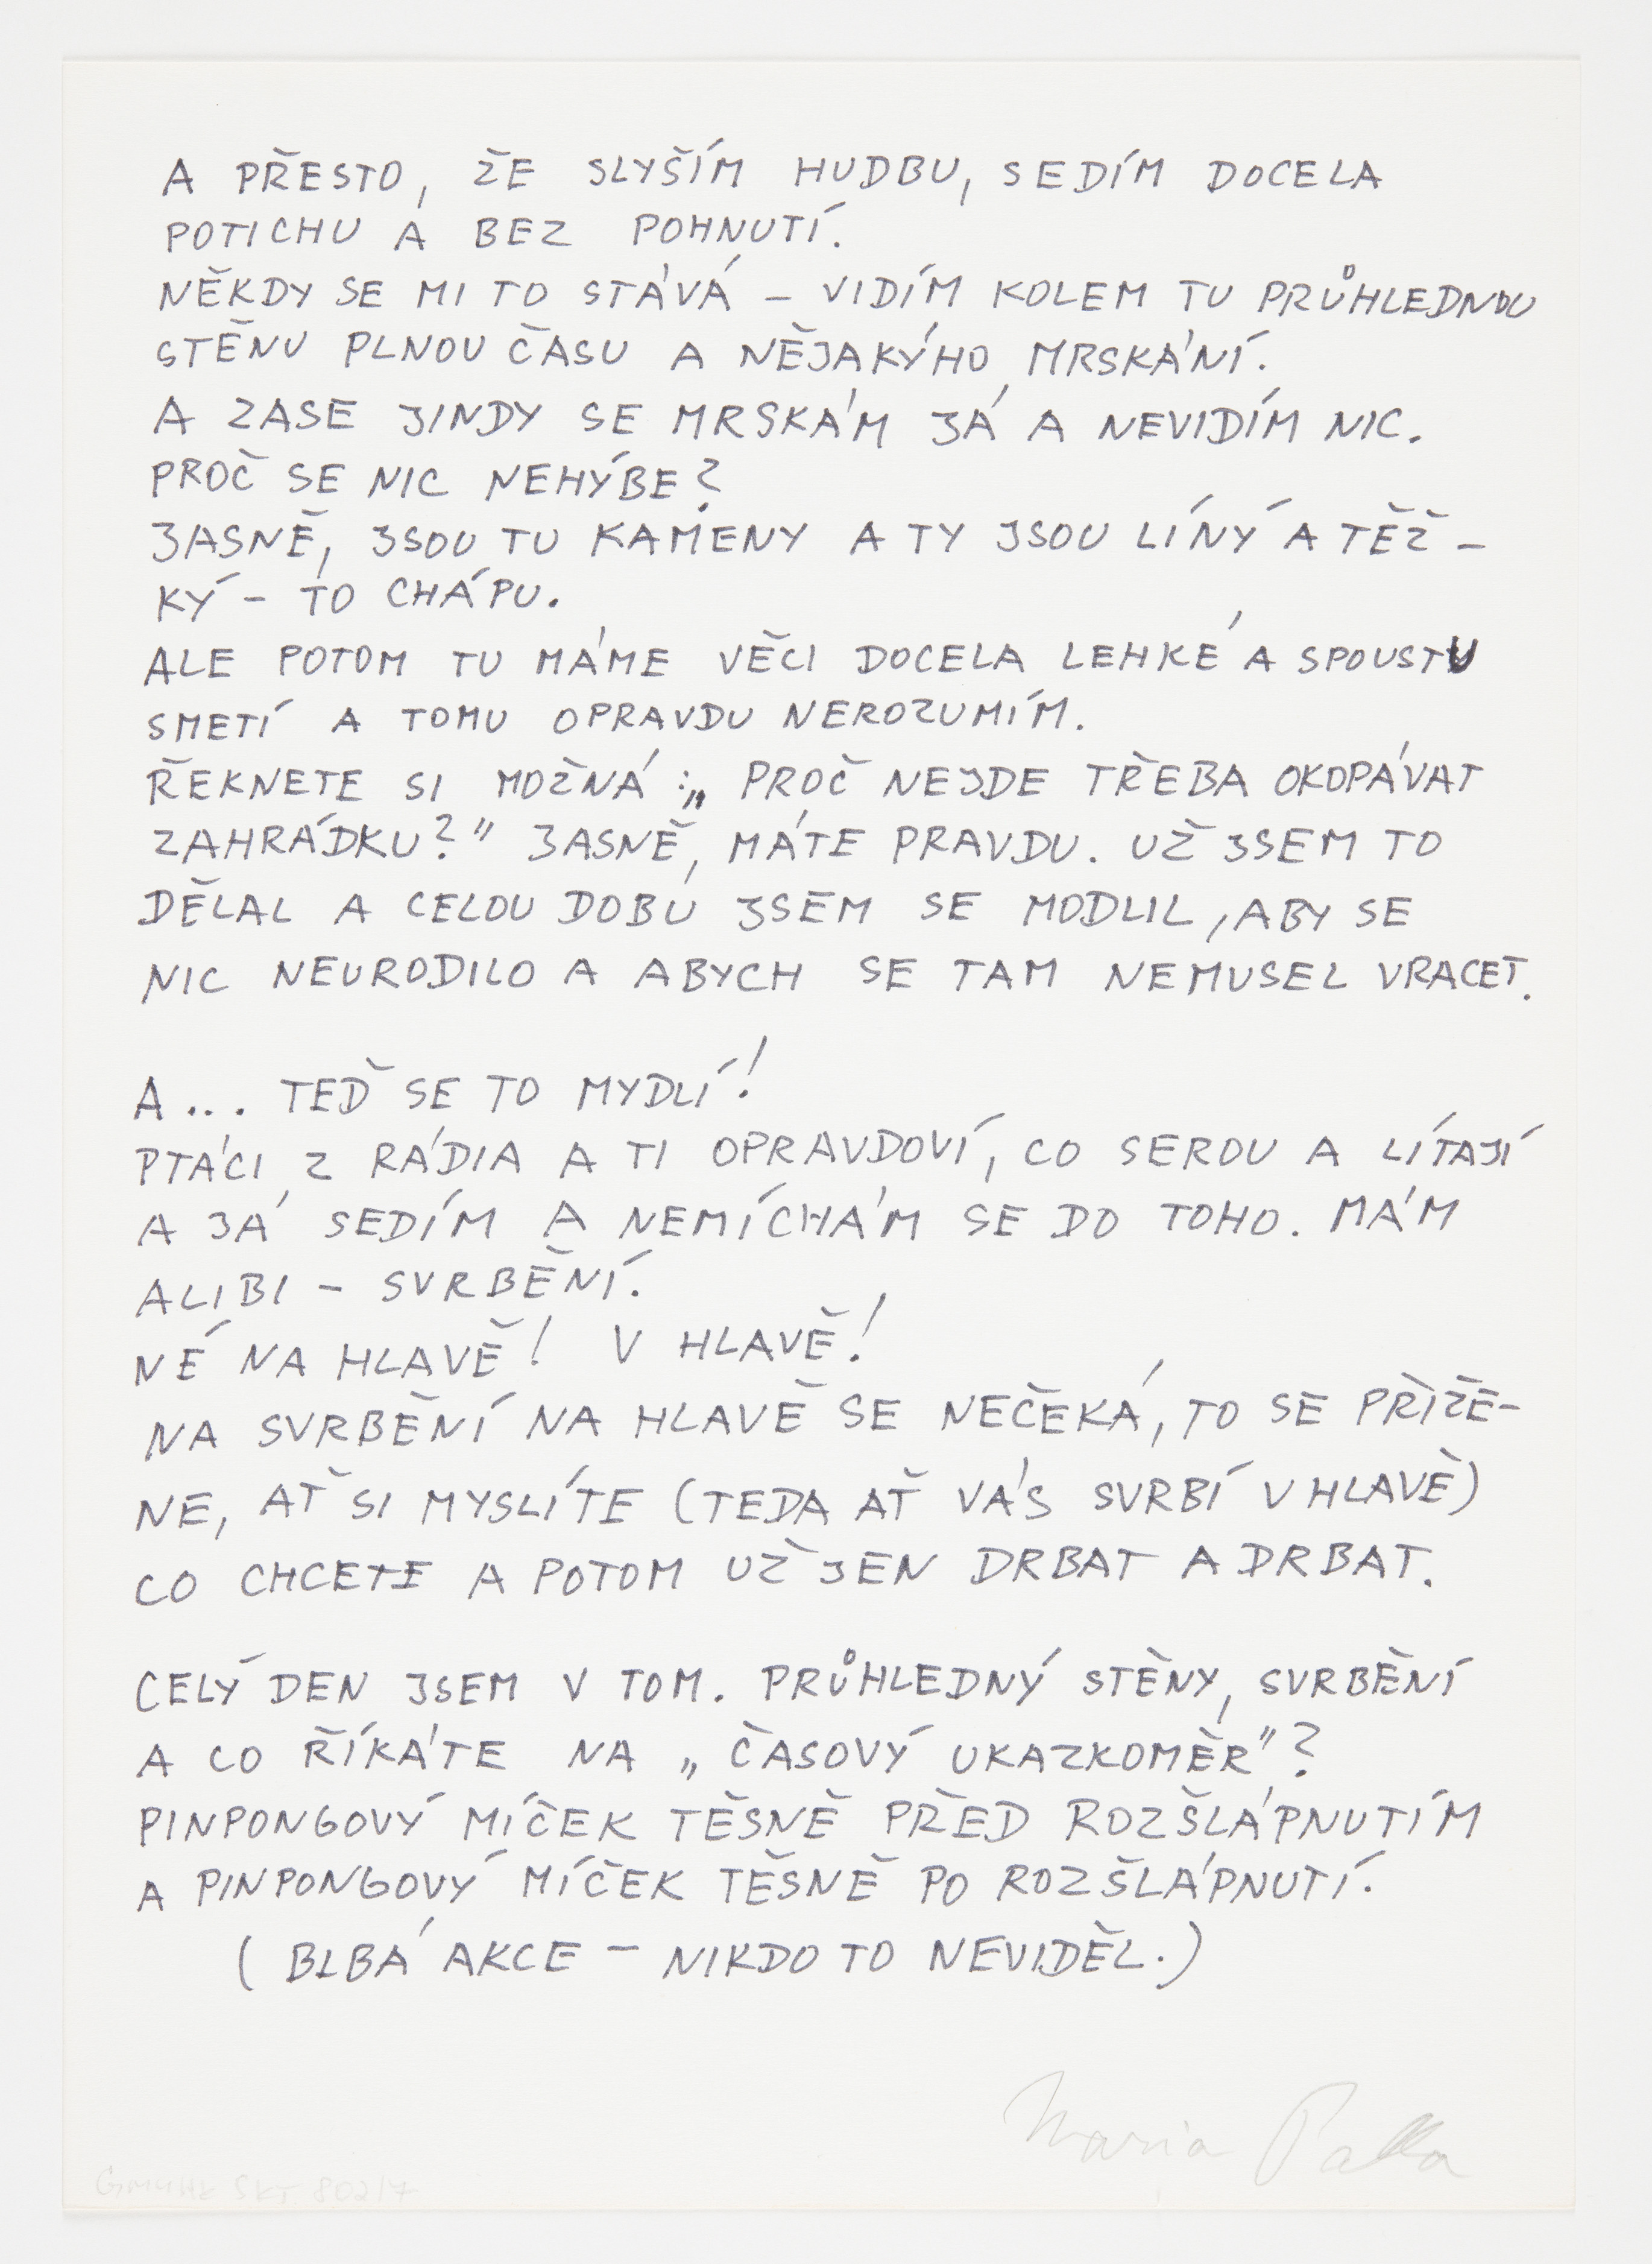 A PŘESTO, ŽE SLYŠÍM HUDBU, SEDÍM DOCELA
POTICHU A BEZ POHNUTÍ.
NĚKDY SE MI TO STÁVÁ – VIDÍM KOLEM TU PRŮHLEDNOU
STĚNU PLNOU ČASU A NĚJAKÝHO MRSKÁNÍ.
A ZASE JINDY SE MRSKÁM JÁ A NEVIDÍM NIC.
PROČ SE NIC NEHÝBE?
JASNĚ, JSOU TU KAMENY A TY JSOU LÍNÝ A TĚŽ–
KÝ – TO CHÁPU.
ALE POTOM TU MÁME VĚCI DOCELA LEHKÉ A SPOUSTU
SMETÍ A TOMU OPRAVDU NEROZUMÍM.
ŘEKNETE SI MOŽNÁ: „PROČ NEJDE TŘEBA OKOPÁVAT
ZAHRÁDKU?" JASNĚ, MÁTE PRAVDU. UŽ JSEM TO
DĚLAL A CELOU DOBU JSEM SE MODLIL, ABY SE
NIC NEURODILO A ABYCH SE TAM NEMUSEL VRACET.
A... TEĎ SE TO MYDLÍ!
PTÁCI Z RÁDIA A TI OPRAVDOVÍ, CO SEROU A LÍTAJÍ
A JÁ SEDÍM A NEMÍCHÁM SE DO TOHO. MÁM
ALIBI – SVRBĚNÍ.
NÉ NA HLAVĚ! V HLAVĚ!
NA SVRBĚNÍ NA HLAVĚ SE NEČEKÁ, TO SE PŘIŽE–
NE, AŤ SI MYSLÍTE (TEDA AŤ VÁS SVRBÍ V HLAVĚ)
CO CHCETE A POTOM UŽ JEN DRBAT A DRBAT.
CELÝ DEN JSEM V TOM. PRŮHLEDNÝ STĚNY, SVRBĚNÍ
A CO ŘÍKÁTE NA „ČASOVÝ UKAZKOMĚR"?
PINPONGOVÝ MÍČEK TĚSNĚ PŘED ROZŠLÁPNUTÍM
A PINPONGOVÝ MÍČEK TĚSNĚ PO ROZŠLÁPNUTÍ.
(BLBÁ AKCE – NIKDO TO NEVIDĚL.)
Maria
SKT 802/7